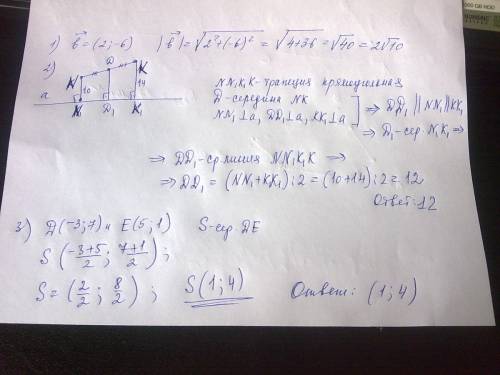 1) b⃗ = (2; -6) |b⃗| = √(2² + (-6)²) = √(4+36) = √40 = 2√10
2)
N D K
10 14
a N₁ D₁ K₁
NN₁K₁K - трапеция прямоугольная
D - середина NK
NN₁⊥a, DD₁⊥a, KK₁⊥a ] ⇒ DD₁ || NN₁ || KK₁
⇒ D₁ - сер. N₁K₁ ⇒
⇒ DD₁ - ср. линия NN₁K₁K ⇒
⇒ DD₁ = (NN₁ + KK₁) : 2 = (10+14) : 2 = 12
Ответ: 12
3) D(-3; 7) и E(5; 1) S - сер. DE
S((-3+5)/2; (7+1)/2);
S = (2/2; 8/2); S(1; 4) Ответ: (1; 4)
500 GB HDD